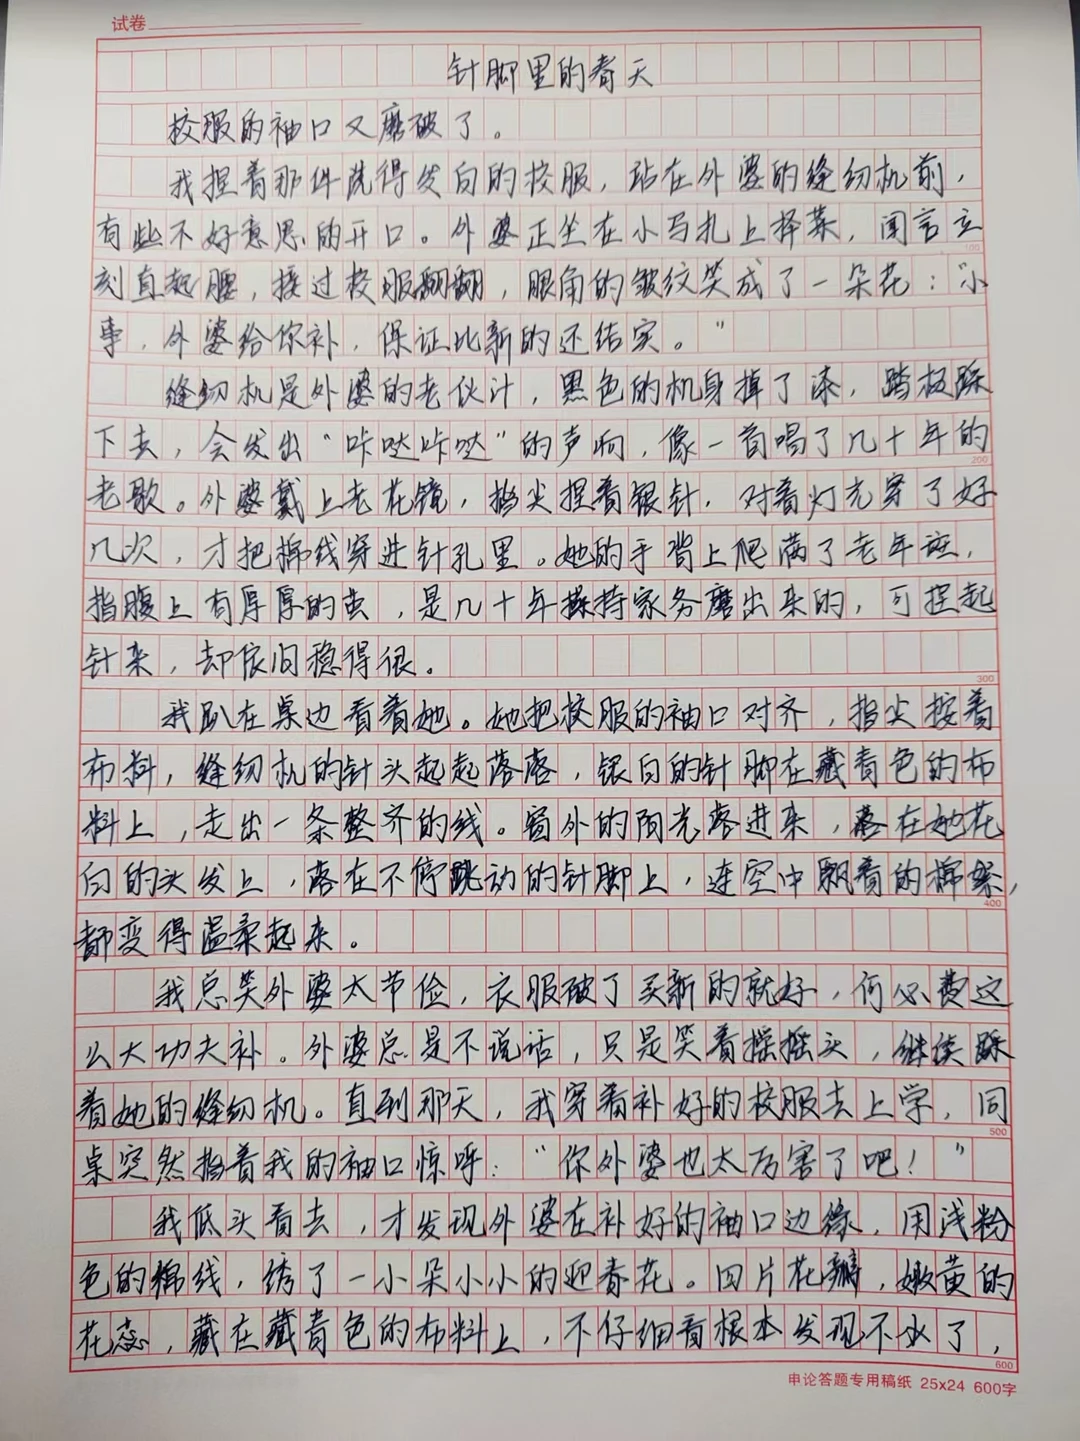 试卷
针脚里的春天
校服的袖口又磨破了。
我捏着那件洗得发白的校服，站在外婆的缝纫机前，
有些不好意思的开口。外婆正坐在小马扎上择菜，闻言立
100
刻直起腰，接过校服翻翻，眼角的皱纹笑成了一朵花："小
事，外婆给你补，保证比新的还结实。"
缝纫机是外婆的老伙计，黑色的机身掉了漆，踏板踩
下去，会发出"咔哒咔哒"的声响，像一首唱了几十年的
200
老歌。外婆戴上老花镜，指尖捏着银针，对着灯光穿了好
几次，才把棉线穿进针孔里。她的手背上爬满了老年斑，
指腹上有厚厚的茧，是几十年操持家务磨出来的，可捏起
针来，却依旧稳得很。
300
我趴在桌边看着她。她把校服的袖口对齐，指尖按着
布料，缝纫机的针头起起落落，银白的针脚在藏青色的布
料上，走出一条整齐的线。窗外的阳光落进来，落在她花
白的头发上，落在不停跳动的针脚上，连空中飘着的棉絮，
400
都变得温柔起来。
我总笑外婆太节俭，衣服破了买新的就好，何必费这
么大功夫补。外婆总是不说话，只是笑着摇摇头，继续踩
着她的缝纫机。直到那天，我穿着补好的校服去上学，同
500
桌突然指着我的袖口惊呼："你外婆也太厉害了吧！"
我低头看去，才发现外婆在补好的袖口边缘，用浅粉
色的棉线，绣了一小朵小小的迎春花。四片花瓣，嫩黄的
花蕊，藏在藏青色的布料上，不仔细看根本发现不了，
600
申论答题专用稿纸 25x24 600字